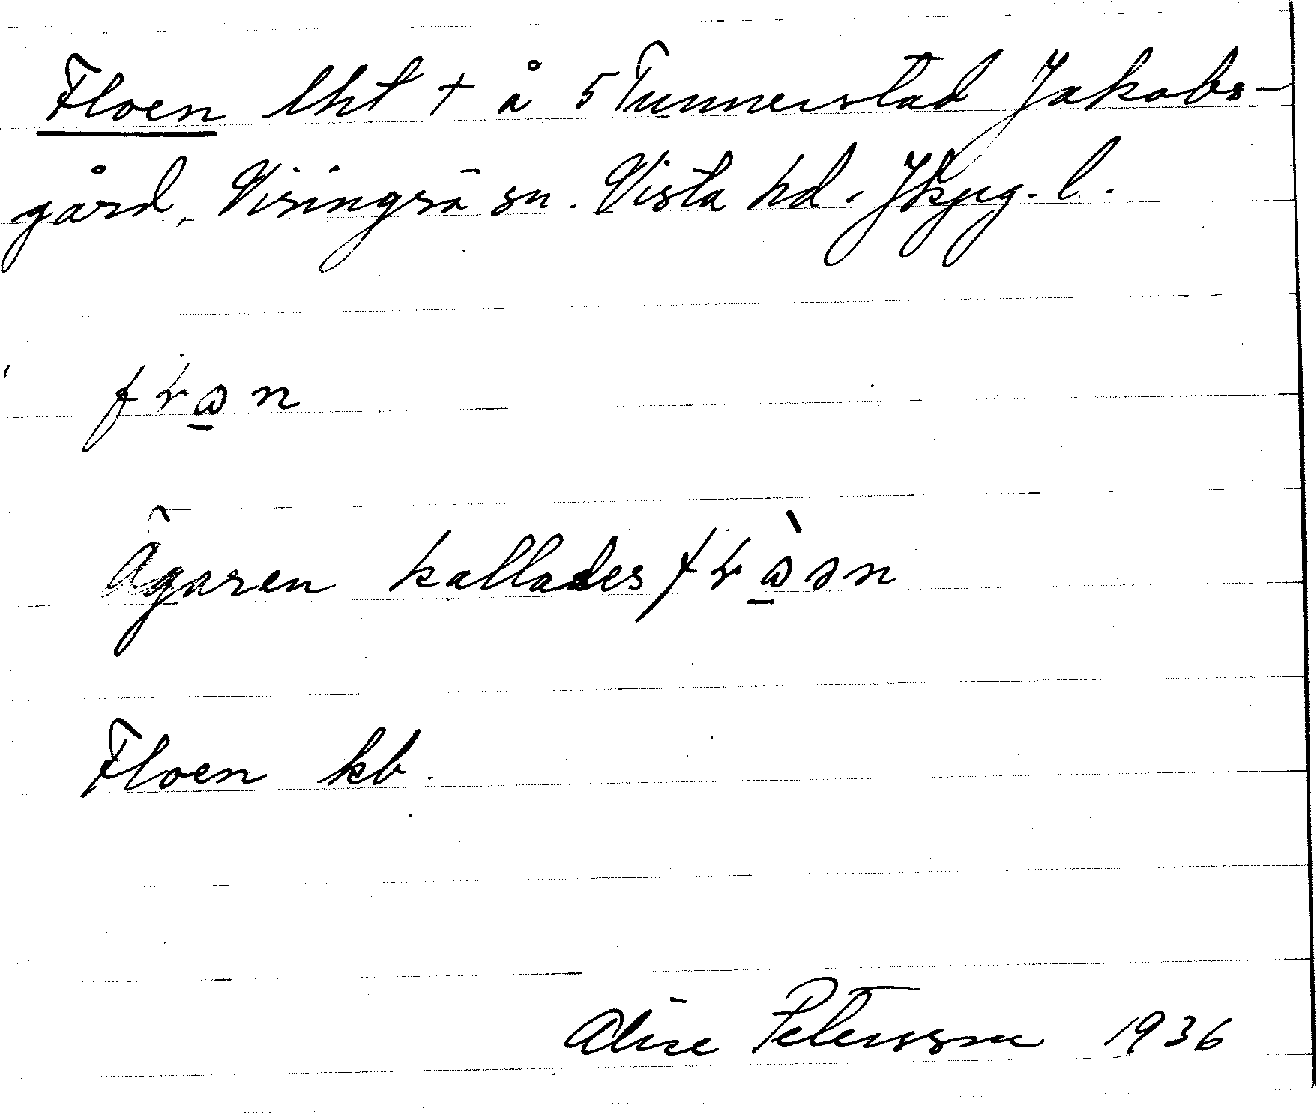 Floen lht + å 5 Tunnerstad Jakobs-
gård, Visingsö sn. Vista hd. Jkpg. l.
Ägaren kallades
Floen kb.
Aline Petersson 1936